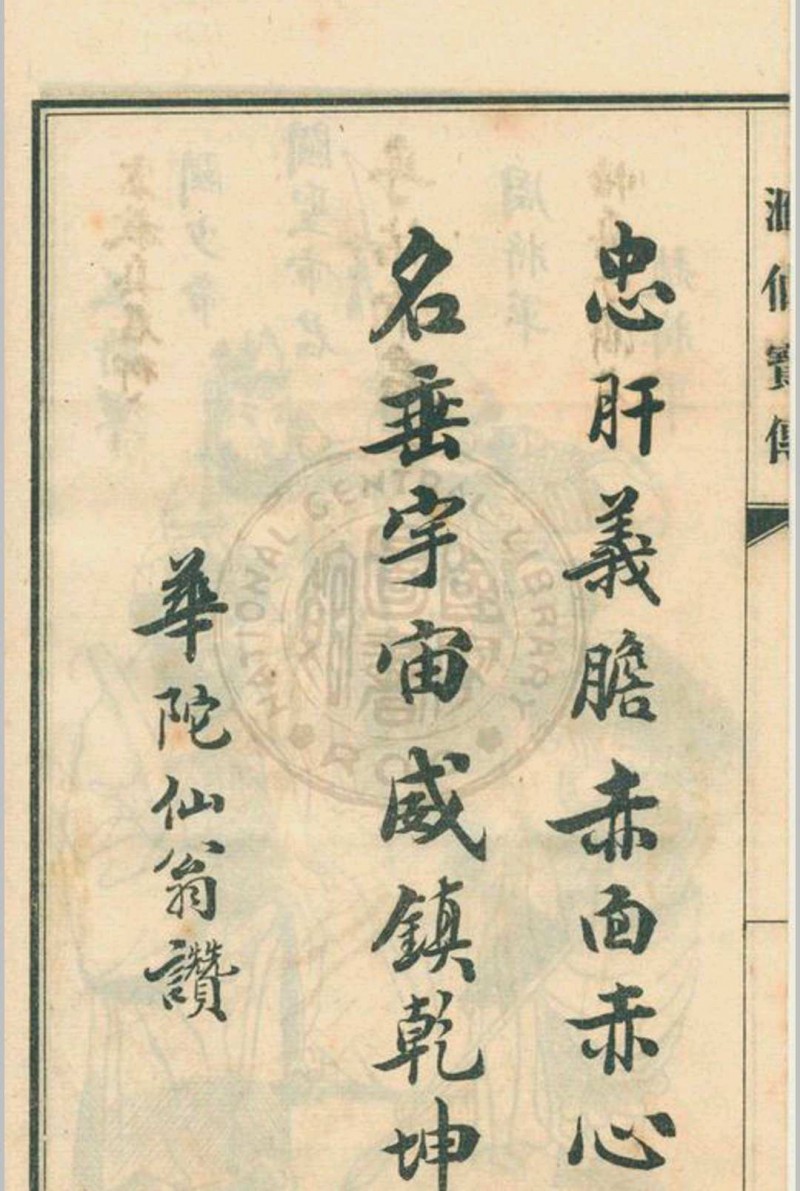 忠肝義膽赤面赤心
名垂宇宙威鎮乾坤
華陀仙翁讚
NATIONAL CENTRAL LIBRARY